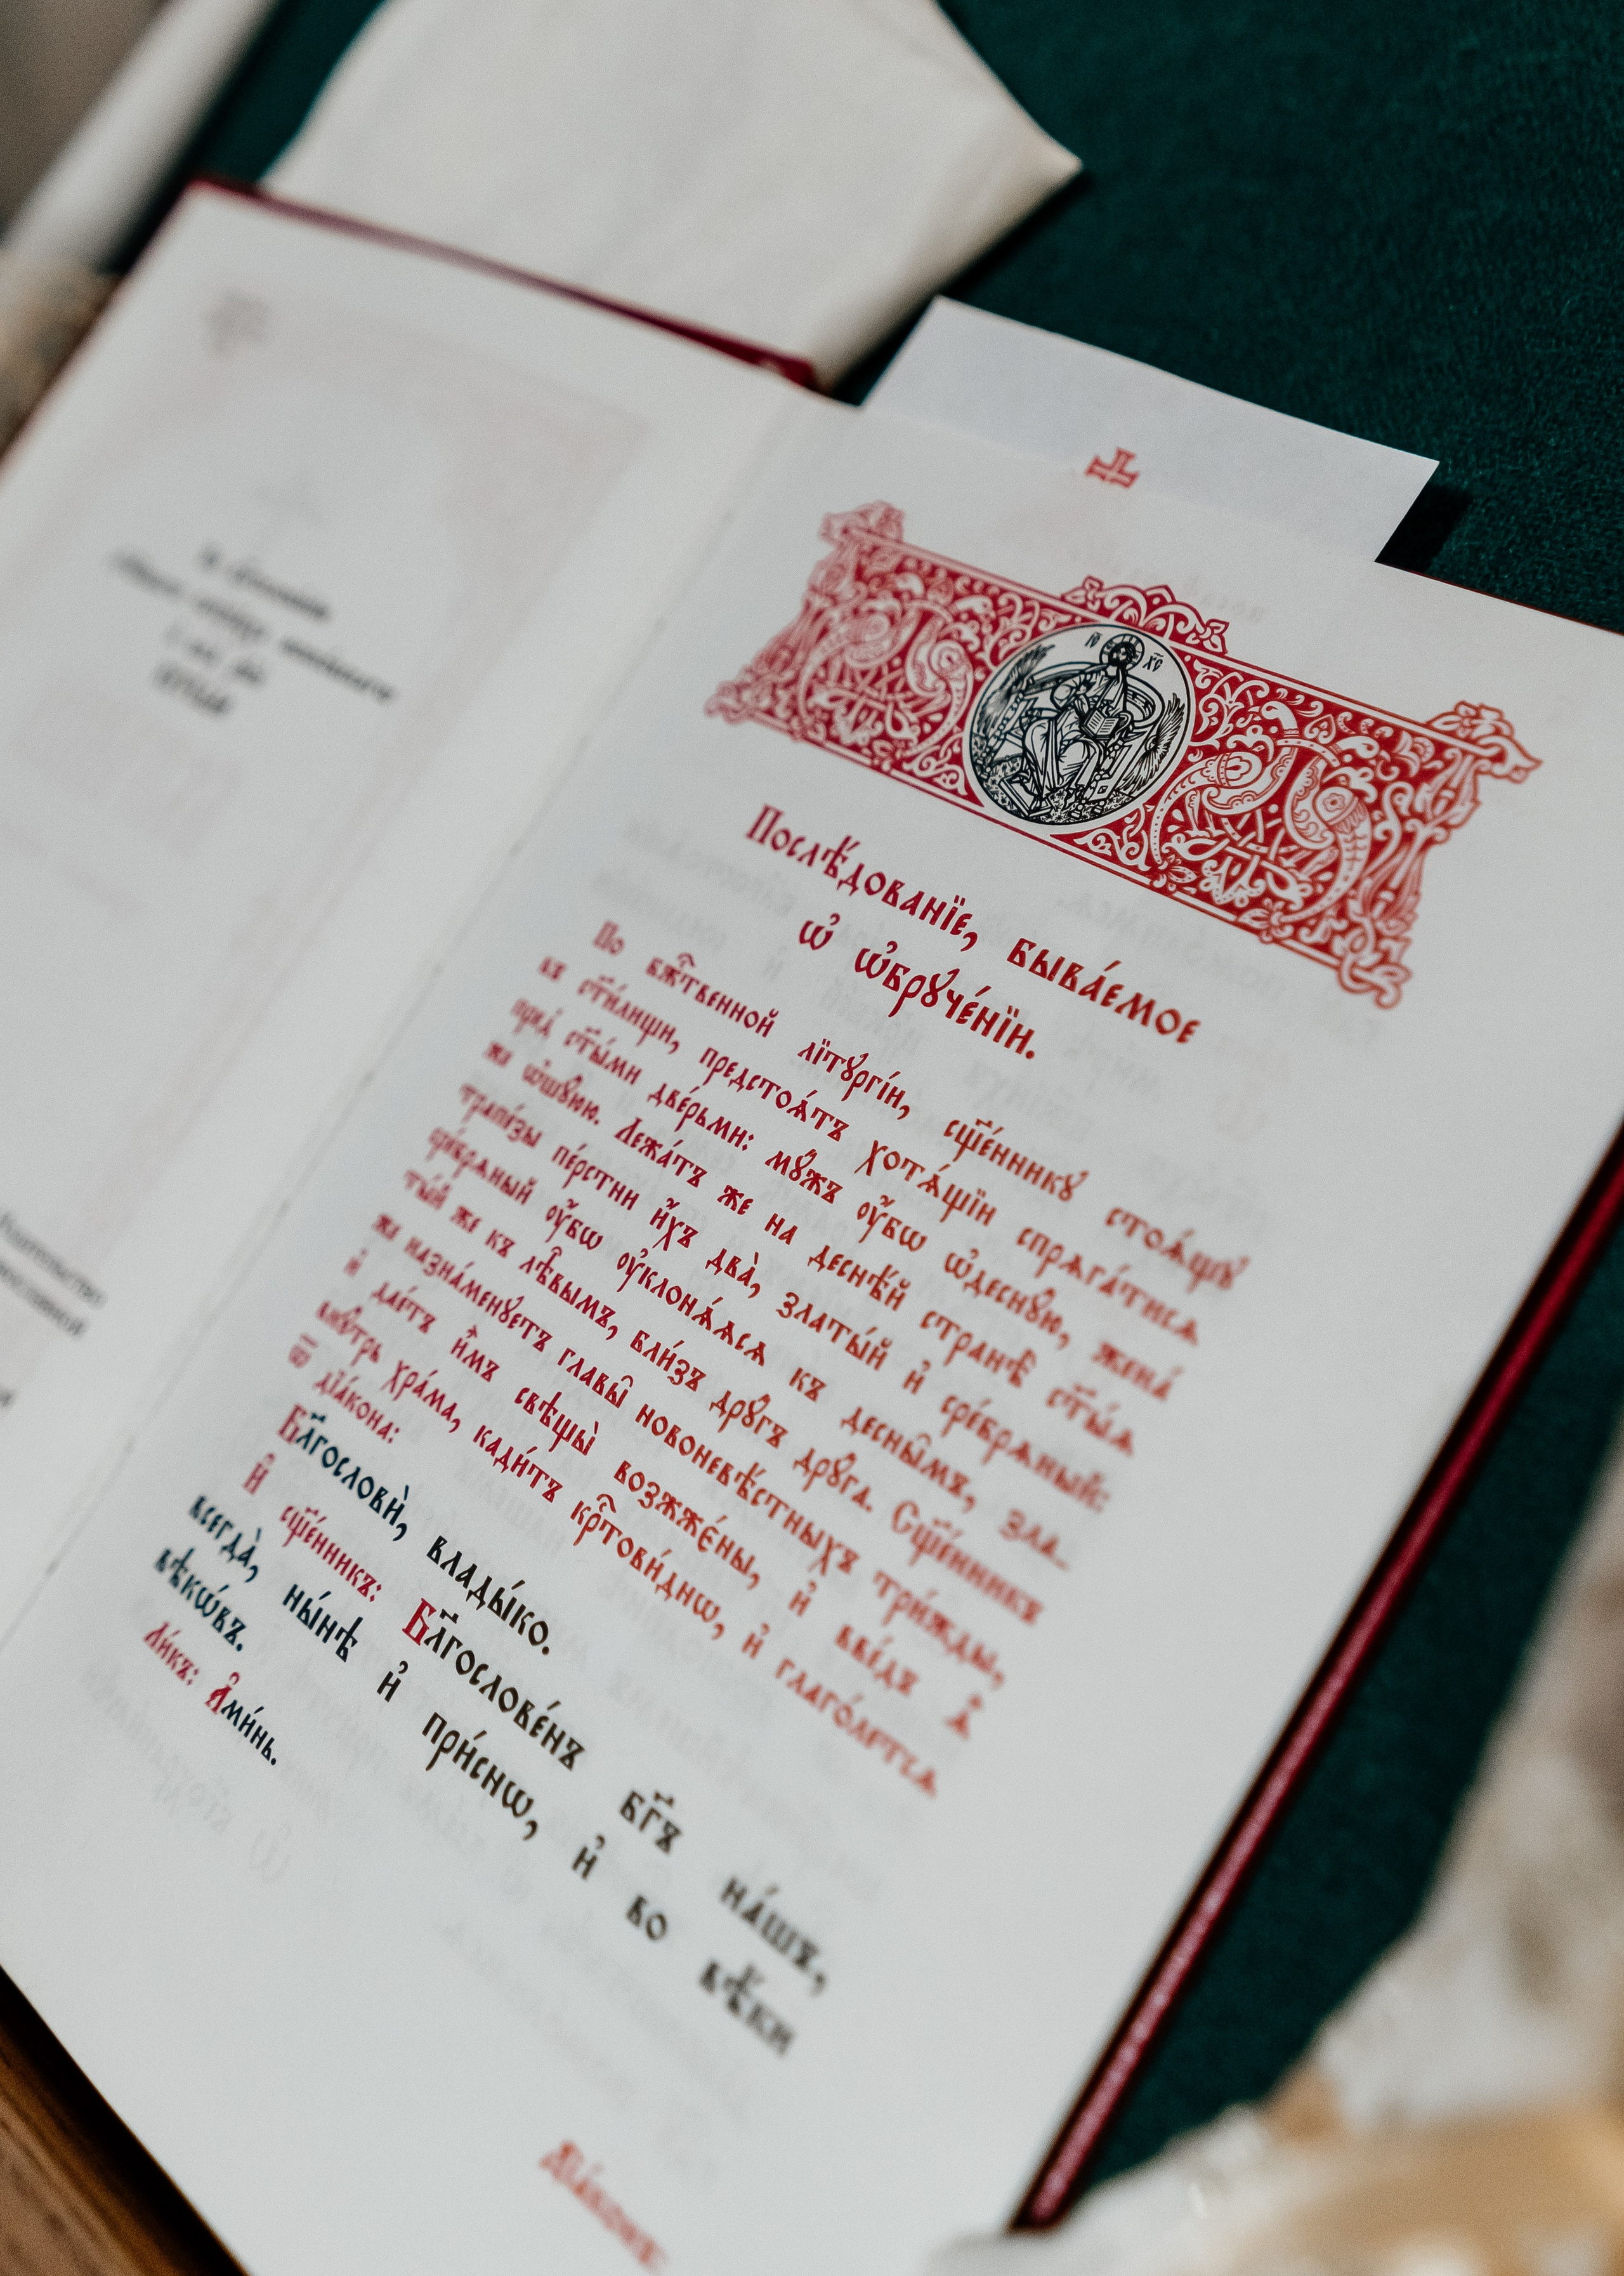 І҃С Х҃С
Послѣ́дованїе, быва́емое
ѡ҆ ѡ҆брꙋче́нїи.
По бж҃твенной лїтꙋргі́и, сщ҃е́нникꙋ стоѧ́щꙋ
въ ст҃и́лищи, предстоѧ́тъ хотѧ́щїи спрѧга́тисѧ
пред̾ ст҃ы́ми две́рьми: мꙋ́жъ ᲂу҆́бѡ ѡ҆деснꙋ́ю, жена́
же ѡ҆шꙋ́юю. Лежа́тъ же на деснѣ́й странѣ̀ ст҃ы́ѧ
трапе́зы пе́рстни и҆́хъ два̀, златы́й и҆ сре́брѧный:
сре́брѧный ᲂу҆́бѡ ᲂу҆клонѧ́ѧсѧ къ десны̑мъ, зла-
ты́й же къ лѣ̑вымъ, бли́зъ дрꙋ́гъ дрꙋ́га. Сщ҃е́нникъ
же назна́менꙋетъ главы̑ новоневѣ́стныхъ три́жды,
и҆ дае́тъ и҆̀мъ свѣщы̀ возжжє́ны, и҆ вве́дъ ѧ҆̀
внꙋ́трь хра́ма, кади́тъ крⷭ҇тови́днѡ, и҆ глаго́летсѧ
ѿ дїа́кона:
Блгⷭ҇ословѝ, влады́ко.
И҆ сщ҃е́нникъ: Бл҃гослове́нъ бг҃ъ на́шъ,
всегда̀, ны́нѣ и҆ при́снѡ, и҆ во вѣ́ки
вѣкѡ́въ.
Ли́къ: А҆ми́нь.
Дїа́конъ: